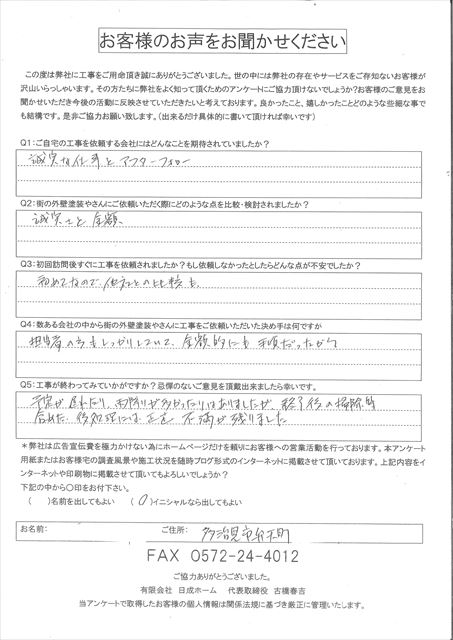 お客様のお声をお聞かせください
この度は弊社に工事をご用命頂き誠にありがとうございました。世の中には弊社の存在やサービスをご存知ないお客様が
沢山いらっしゃいます。その方たちに弊社をよく知って頂くためのアンケートにご協力頂けないでしょうか?お客様のご意見をお
聞かせいただき今後の活動に反映させていただきたいと考えております。良かったこと、嬉しかったことどのような些細な事で
も結構です。是非ご協力お願い致します。(出来るだけ具体的に書いて頂ければ幸いです)
Q1:ご自宅の工事を依頼する会社にはどんなことを期待されていましたか?
誠実な仕事とアフターフォロー
Q2:街の外壁塗装やさんにご依頼いただく際にどのような点を比較・検討されましたか?
誠実さと金額
Q3:初回訪問後すぐに工事を依頼されましたか?もし依頼しなかったとしたらどんな点が不安でしたか?
初めてなので、他社との比較も、
Q4:数ある会社の中から街の外壁塗装やさんに工事をご依頼いただいた決め手は何ですか
担当者の方もしっかりしていて、金額的にも手頃だったから
Q5:工事が終わってみていかがですか?忌憚のないご意見を頂戴出来ましたら幸いです。
予定が遅れたり、もありましたが、終了後の掃除等
含めた、後処理には正直、不満が残りました
*弊社は広告宣伝費を極力かけない為にホームページだけを頼りにお客様への営業活動を行っております。本アンケート
用紙またはお客様宅の調査風景や施工状況を随時ブログ形式のインターネットに掲載させて頂いております。上記内容をイ
ンターネットや印刷物に掲載させて頂いてもよろしいでしょうか?
下記の中から〇印をお付下さい。
( )名前を出してもよい (○)イニシャルなら出してもよい
お名前: ご住所: 多治見市弁天町
FAX 0572-24-4012
ご協力ありがとうございました。
有限会社 日成ホーム 代表取締役 古橋春吉
当アンケートで取得したお客様の個人情報は関係法規に基づき厳正に管理いたします。